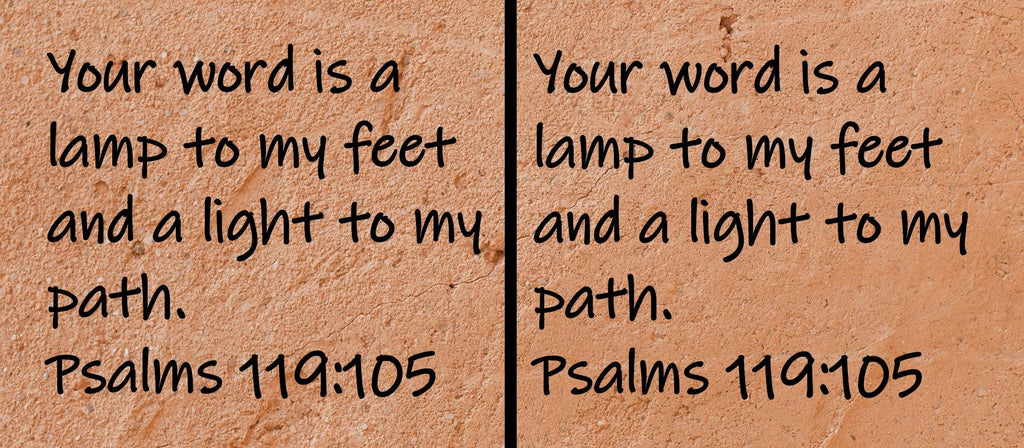 Your word is a
lamp to my feet
and a light to my
path.
Psalms 119:105
Your word is a
lamp to my feet
and a light to my
path.
Psalms 119:105